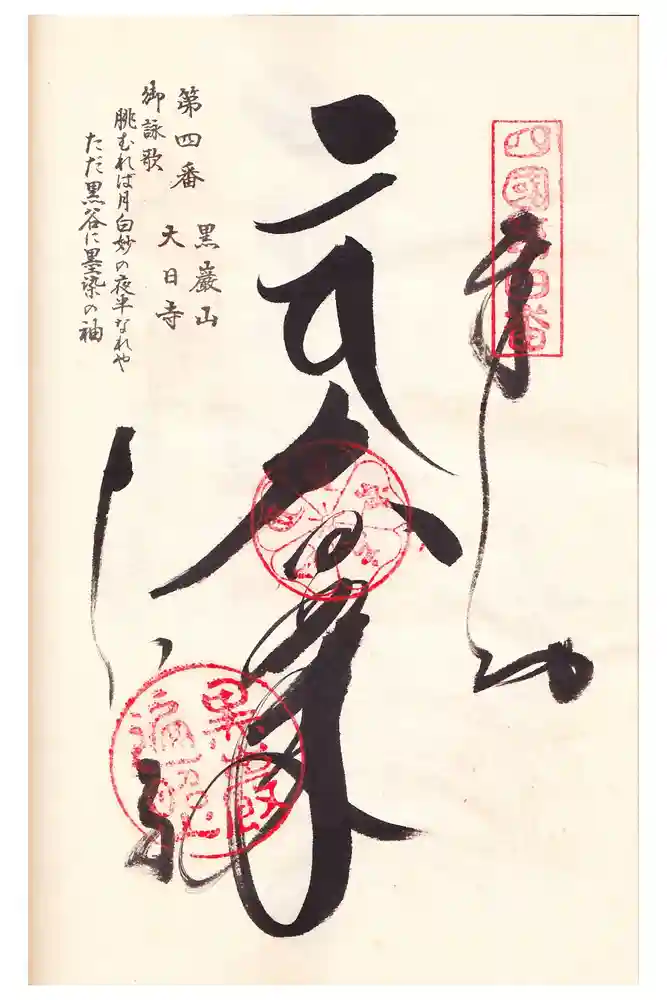 四國第四番
奉納
大日如来
第四番
黒巌山
大日寺
御詠歌
眺むれば月白妙の夜半なれや
ただ黒谷に墨染の袖